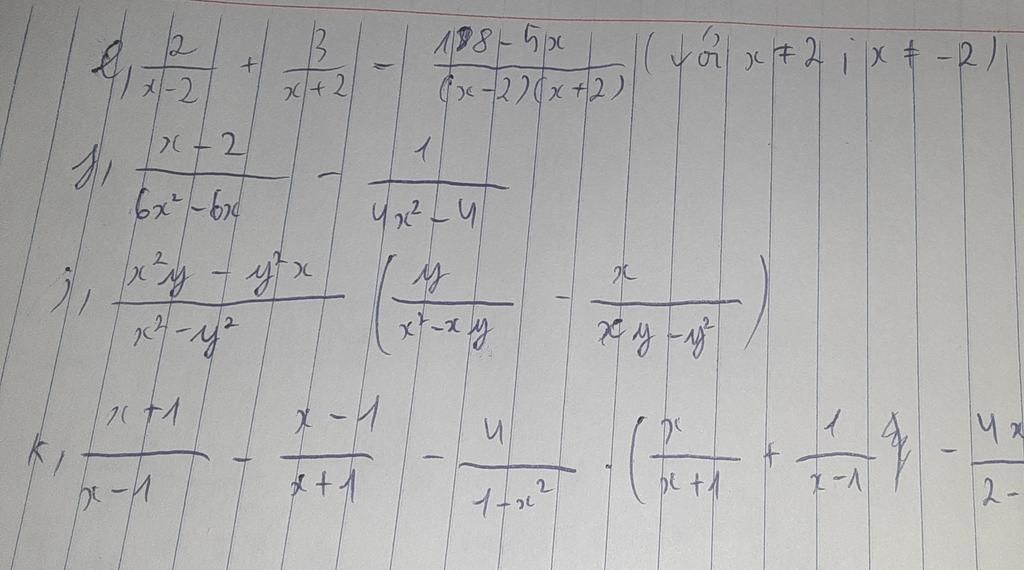 e, \frac{2}{x-2} + \frac{3}{x+2} - \frac{18-5x}{(x-2)(x+2)} (với x ≠ 2 ; x ≠ -2)
y, \frac{x-2}{6x²-6x} - \frac{1}{4x²-4}
j, \frac{x²y - y²x}{x²-y²} ( \frac{y}{x²-xy} - \frac{x}{xy-y²} )
k, \frac{x+1}{x-1} - \frac{x-1}{x+1} - \frac{4}{1-x²} . ( \frac{x}{x+1} + \frac{1}{x-1} - \frac{4x}{2-}